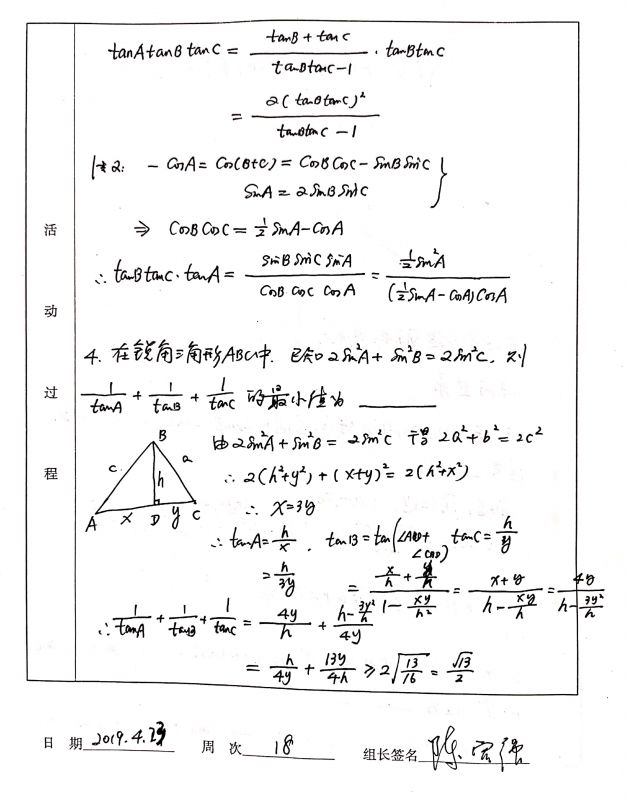 tanA tanB tanC = (tanB + tanC)/(tanBtanC − 1) · tanBtanC
= 2(tanBtanC)²/(tanBtanC − 1)
法2: − cosA = cos(B+C) = cosBcosC − sinBsinC
sinA = 2sinBsinC }
⇒ cosBcosC = ½ sinA − cosA
∴ tanBtanC·tanA = (sinB sinC sinA)/(cosB cosC cosA) = (½ sin²A)/((½ sinA − cosA)cosA)
4. 在锐角三角形ABC中. 已知 2sin²A + sin²B = 2sin²C, 则
1/tanA + 1/tanB + 1/tanC 的最小值为 ______
由 2sin²A + sin²B = 2sin²C 可得 2a² + b² = 2c²
∴ 2(h²+y²) + (x+y)² = 2(h²+x²)
∴ x = 3y
B
c
a
h
A
x
D
y
C
∴ tanA = h/x , tanB = tan(∠ABD + ∠CBD) tanC = h/y
= h/3y = (x/h + y/h)/(1 − xy/h²) = (x+y)/(h − xy/h) = 4y/(h − 3y²/h)
∴ 1/tanA + 1/tanB + 1/tanC = 4y/h + (h − 3y²/h)/4y
= h/4y + 13y/4h ≥ 2√(13/16) = √13/2
活
动
过
程
日 期 2019.4.23 周 次 18 组长签名